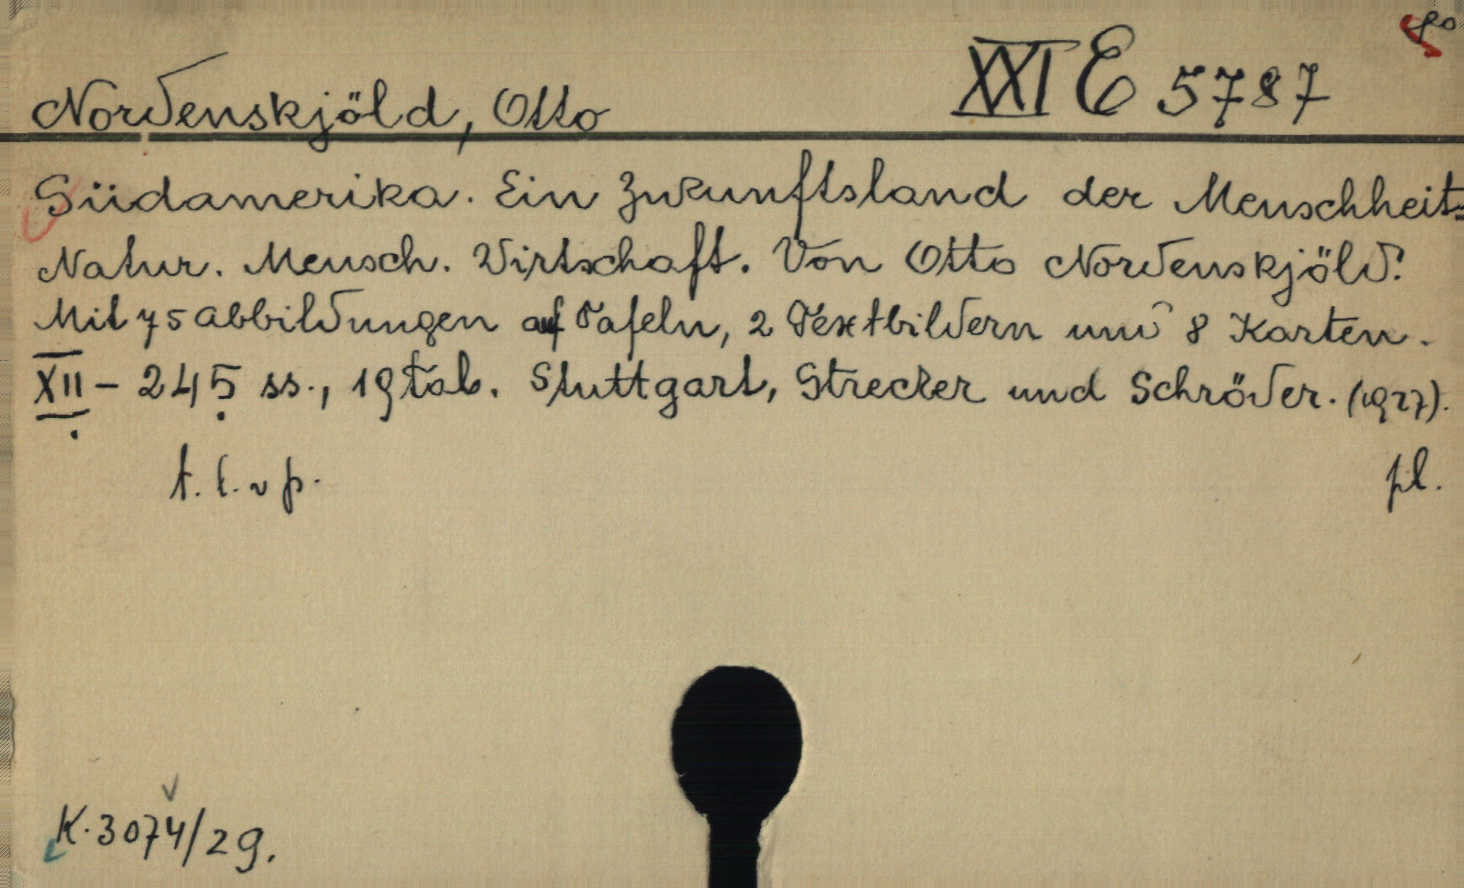 80
XXI E 5787
Nordenskjöld, Otto
Südamerika. Ein Zukunftsland der Menschheit=
Natur. Mensch. Wirtschaft. Von Otto Nordenskjöld.
Mit 75 Abbildungen auf Tafeln, 2 Textbildern und 8 Karten.
XII – 245 ss., 19 tab. Stuttgart, Strecker und Schröder. (1927).
pl.
K. 3074/29.